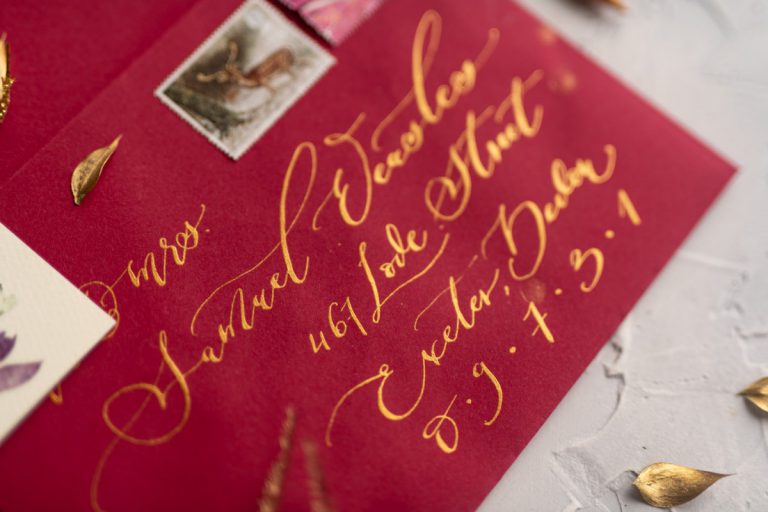 mrs.
Samuel
467 Lode Street
Exeter, Devon
8.9.7.3.1